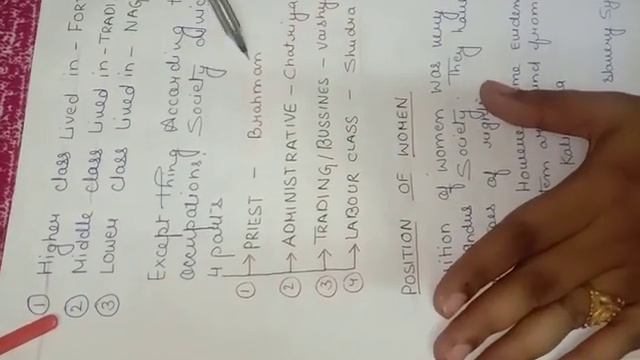 ① Higher class Lived in - FOR
② Middle class Lived in - TRADI
③ Lower class Lived in - NAG
Except thing According t
occupations! Society
4 parts
① → PRIEST - Brahman
② → ADMINISTRATIVE - Chatriya
③ → TRADING/BUSSINES - Vaishy
④ → LABOUR CLASS - Shudra
POSITION OF WOMEN
ition of women was very
Society. They have
of righ
Howeve me Eviden
tem a nd from
Kali
Slavery Sy